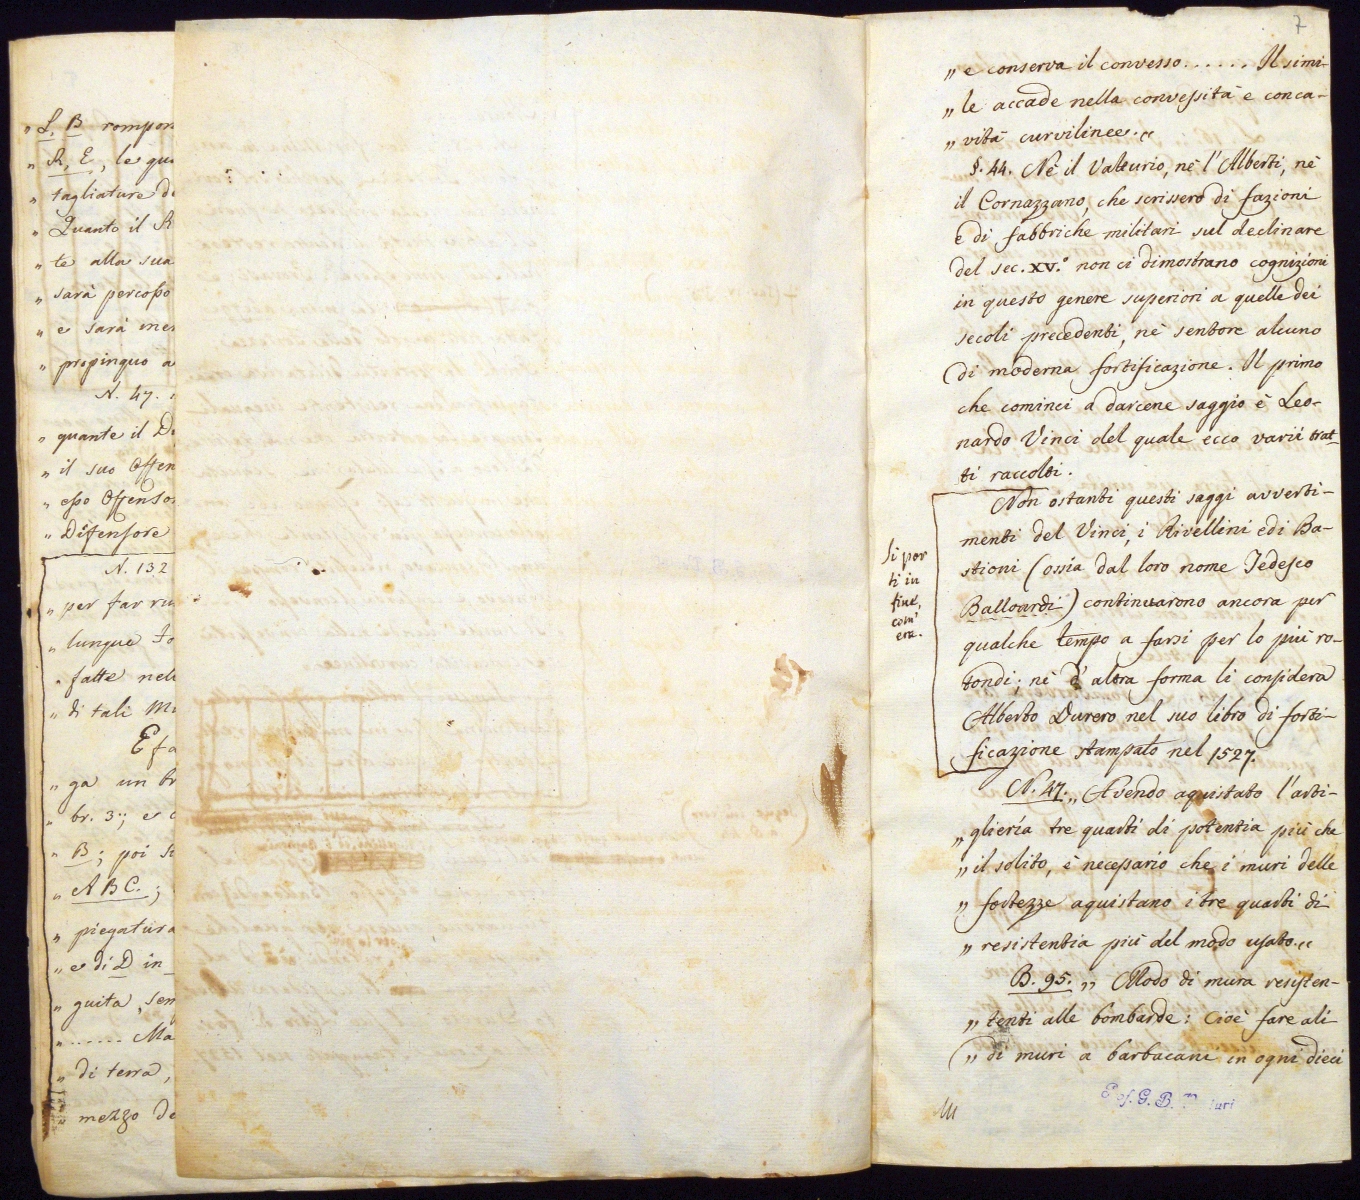 „ L, B rompon
„ R, E, le qua
„ tagliature de
„ Quanto il R
„ te alla sua
„ sarà percosso
„ e sarà men
„ propinquo a
N. 47.
„ quante il D
„ il suo Offen
„ esso Offenso
„ Difensore
N. 132
„ per far ru
„ lungue fo
„ fatte nel
„ di tali Mu
E fa
„ ga un br
„ br. 3; e
„ B; poi s
„ ABC.;
„ piegatura
„ e di D in
„ guita, sen
„ ...... Ma
„ di terra,
„ mezzo de
7
„ e conserva il convesso...... Il simi-
„ le accade nella convessità e conca-
„ vità curvilinee. „
§. 44. Nè il Valturio, nè l'Alberti, nè
il Cornazzano, che scrissero di fazioni
e di fabbriche militari sul declinare
del sec. XV.° non ci dimostrano cognizioni
in questo genere superiori a quelle dei
secoli precedenti, nè sentore alcuno
di moderna fortificazione. Il primo
che cominci a darcene saggio è Leo-
nardo Vinci del quale ecco varii trat-
ti raccolti.
Non ostanti questi saggi avverti-
menti del Vinci, i Rivellini ed i Ba-
stioni (ossia dal loro nome Tedesco
Balloardi) continuarono ancora per
qualche tempo a farsi per lo più ro-
tondi; nè d'altra forma li considera
Alberto Durero nel suo libro di forti-
ficazione stampato nel 1527.
Si por
ti in
fine,
com'
era.
N. 47. „ Avendo aquistato l'arti-
„ glieria tre quarti di potentia più che
„ il solito, è necessario che i muri delle
„ fortezze aquistano i tre quarti di
„ resistentia più del modo usato. „
B. 95. „ Modo di mura resisten-
„ tenti alle bombarde: cioè fare ali-
„ di muri a barbacani in ogni dieci
G. B.